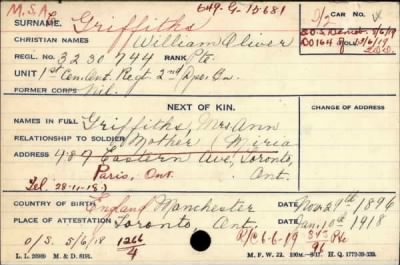 M.S.A. 649-G-15681
CAR NO.
SURNAME. Griffiths
CHRISTIAN NAMES William Oliver
REGL. NO. 3230744 RANK Pte.
UNIT 1st Cen. Ont. Regt. 2nd Dpo. Bn.
FORMER CORPS Nil.
NEXT OF KIN. CHANGE OF ADDRESS
NAMES IN FULL Griffiths, Mrs Ann
RELATIONSHIP TO SOLDIER Mother Miria
ADDRESS 489 Eastern Ave, Toronto,
Paris, Ont. Ont.
Tel. 28-11-18
COUNTRY OF BIRTH England Manchester DATE Nov. 29th 1896
PLACE OF ATTESTATION Toronto, Ont. DATE Jan. 10th 1918
O/S. 5/6/18 1266/4 6-6-19
L. L. 26989 M. & D. 8191. M. F. W. 22. H. Q. 1772-39-339.